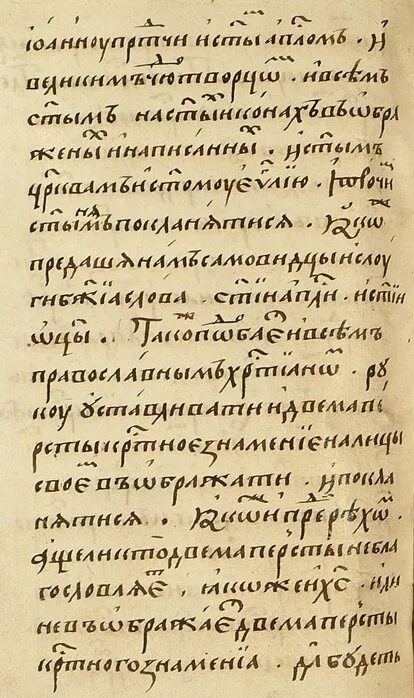 іѡанноу прⷣтчи и ст҃ыⷨ апⷭ҇лѡмъ . и
великимъ чюⷣтворцѡⷨ . и всѣмъ
ст҃ымъ на ст҃ыⷯ иконахъ въѡбра
женыⷯ и написанныⷯ . и ст҃ымъ
цр҃квамъ и ст҃омоу еѵⷢ҇лію . и прочиⷨ
ст҃ынямъ покланятися . ꙗкоⷤ
предашя намъ самовидцы и слоу
ги бж҃іа слова . ст҃іи апⷭ҇ли . и ст҃іи
ѡц҃ы . . Такоⷤ поⷣбаеⷮ и всѣмъ
православнымъ хрⷭ҇тіаномъ . ру
коу ѹставливати и двема пе
рсты крⷭ҇тное знаменіе на лицы
своеⷨ въѡбражати . и покла
нятися . ꙗкоⷤ и преⷣрѣхоⷨ .
аще ли кто двема персты не бла
гословляеⷮ , ꙗкоже и хс҃ . или
не въѡбражаеⷮ двема персты
крⷭ҇тного знаменіа . да будеть